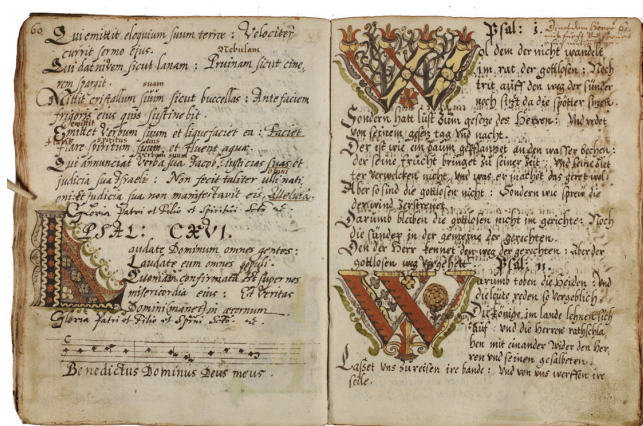 60
Qui emittit eloquium suum terre : Velociter
currit sermo ejus.
Nebulam
Qui dat nivem sicut lanam : Pruinam sicut cine,
rem spargit.
suam
Mittit cristallum suum sicut buccellas : Ante faciem
frigoris eius quis sustinebit
Emittet verbum suum et liquefaciet ea : Faciet
flare spiritum suum, et fluent aquæ.
Qui annunciat verba sua Jacob, Justicias suas et
judicia sua Israeli : Non fecit taliter ulli nati,
oni et judicia sua non manifestavit eis, Alleluia.
Gloria Patri et Filio et Spiritui
PSAL: CXVI.
Laudate Dominum omnes gentes :
Laudate eum omnes
Quoniam confirmata est super nos
misericordia eius : Et Veritas
Domini manet in æternum
Gloria patri et Filio et
Benedictus Dominus Deus meus .
Psal: 1.
Wol dem der nicht wandelt
im rat der gottlosen : Noch
trit auff den weg der sünder
noch sitzt da die spötter sitzen.
Sondern hatt lust zum gesetze des Herren : Und redet
von seinem gesetz tag und nacht.
Der ist wie ein baum gepflantzet an den wasser bechen :
der seine frücht bringet zu seiner zeit : Und seine blet
ter verwelcken nicht, und was er machet das geret wol.
Aber so sind die gottlosen nicht : Sondern wie sprew die
der wind zerstrewet.
Darumb bleiben die gottlosen nicht im gerichte : Noch
die sünder in der gemeine der gerechten.
Den der Herr kennet den weg der gerechten : Aber der
gottlosen weg vergehet.
Psal. 11.
Warumb toben die Heiden : Und
die leute reden so vergeblich
Die könige im lande lehnen sich
auff : und die Herren rathschla
hen mit einander Wider den Her,
ren und seinen gesalbeten.
Lasset uns zureisen ire bande : Und von uns werffen ire
seile.